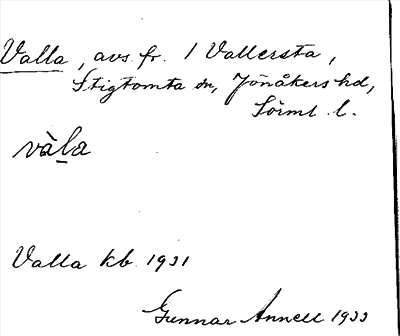 Valla, avs. fr. 1 Vallersta,
Stigtomta sn, Jönåkers hd,
Sörml. l.
va̍l̠a
Valla kb. 1931
Gunnar Annell 1933